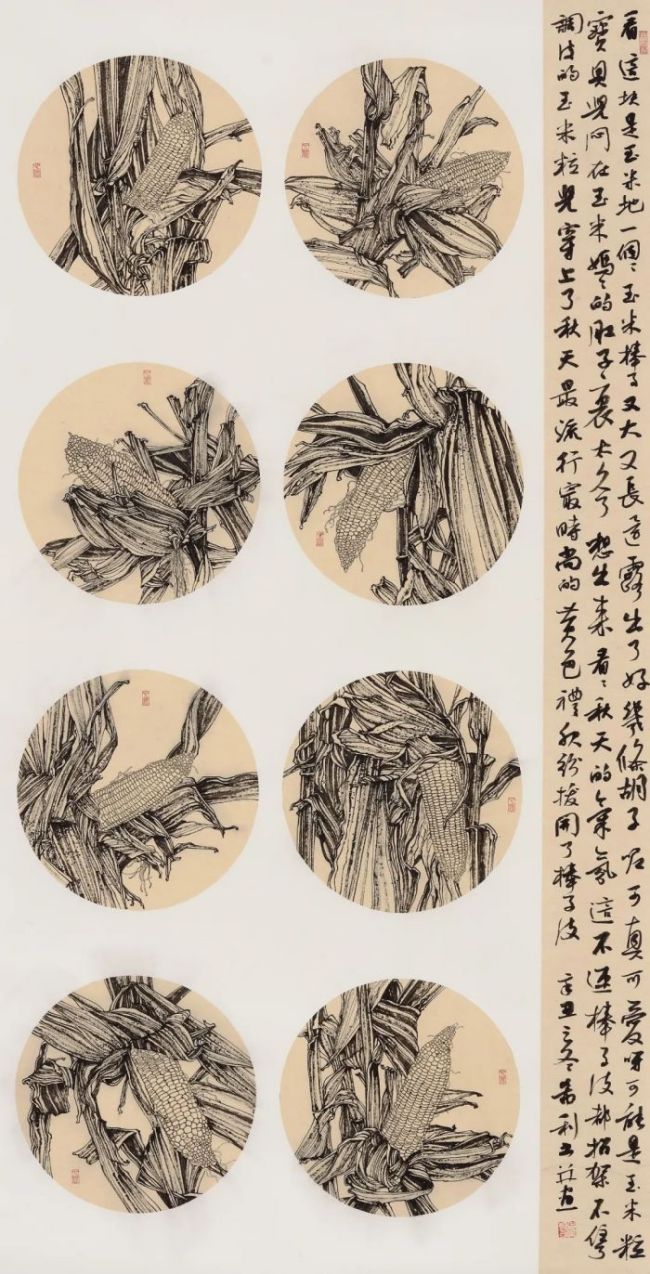 看這块是玉米地一個〻玉米棒子又大又長還露出了好幾條胡子可真可愛呀可能是玉米粒
寶貝兒悶在玉米媽〻的肚子裏太久了想出來看〻秋天的氣氛這不連棒子皮都招架不
調皮的玉米粒兒穿上了秋天最流行最時尚的黃色禮服紛撥開了棒子皮 辛丑之冬希利書並畫